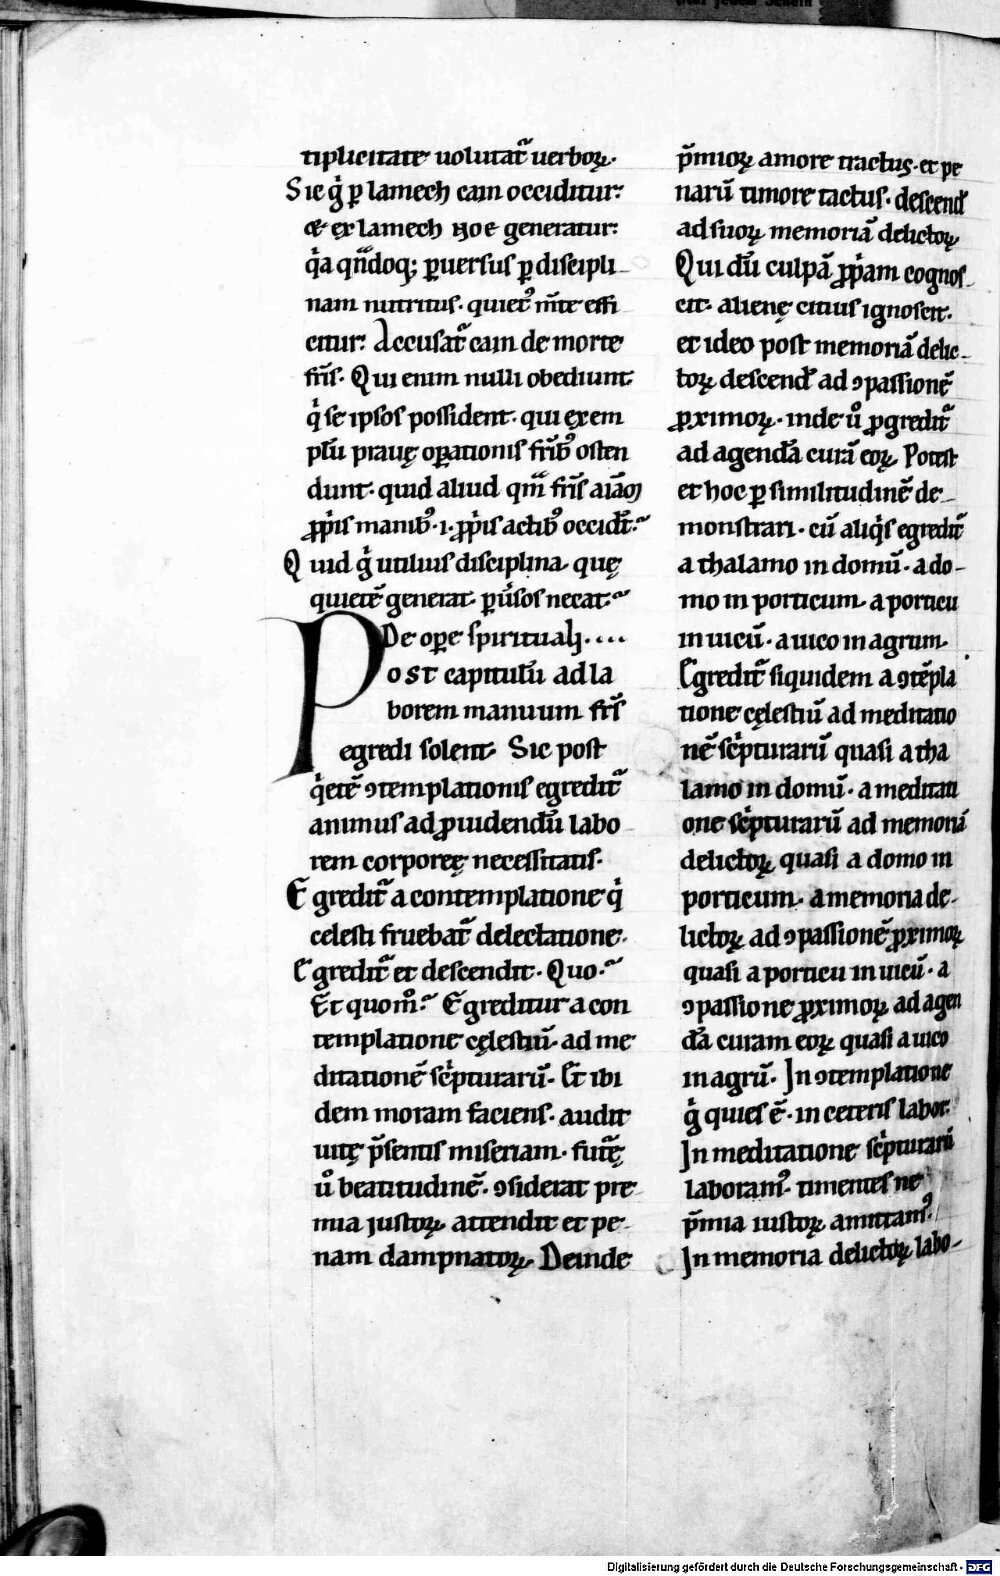 tiplicitate uolutat᷑ uerboꝝ.
Sic g̊ ꝑ lamech cain occiditur:
& ex lamech noe generatur:
q̇a qn̄doq; ꝑuersus ꝑ discipli-
nam nutritus. quiet᷒ in m̄te effi
citur: Accusat᷑ cain de morte
fr̄is. Qui enim nulli obediunt.
q̇ se ipsos possident. qui exem
plū prauę oꝑationis fr̄ib᷒ osten
dunt. quid aliud qm̄ fr̄is aīam
ꝓpriis manib᷒ .i. ꝓpriis actib᷒ occidūt.
Quid g̊ utilius disciplina. quę
quietē generat. ꝑuersos necat.
De oꝑe spirituali....
Post capitulū ad la
borem manuum fr̄s
egredi solent. Sic post
q̇etē ꝯtemplationis egredit᷑
animus ad ꝓuidendū labo
rem corporeę necessitatis.
Egredit᷑ a contemplatione q̇
celesti fruebat᷑ delectatione.
Egredit᷑ et descendit. Quo.
Et quom̊. Egreditur a con
templatione cęlestiū. ad me
ditationē sċpturarū. Et ibi
dem moram faciens. audit
uitę p̄sentis miseriam. futurę
ů beatitudinē. ꝯsiderat pre
mia iustoꝝ. attendit et pe-
nam dampnatoꝝ. Deinde
p̄mioꝝ amore tractus. et pe
narū timore tactus. descend᷑
ad suoꝝ memoriā delictoꝝ
Qui dū culpā ꝓpriam cognos-
cit. alienę citius ignoscit.
et ideo post memoriā delic-
toꝝ descend᷑ ad ꝯpassionē
ꝓximoꝝ. inde ů ꝓgredit᷑
ad agendā curā eoꝝ. Potest
et hoc ꝑ similitudinē de-
monstrari. cū aliq̇s egredit᷑
a thalamo in domū. a do-
mo in porticum. a porticu
in uicū. a uico in agrum.
Egredit᷑ siquidem a ꝯtēpla
tione cęlestiū ad meditatio
nē sċpturarū quasi a tha
lamo in domū. a meditati
one sċpturarū ad memoriā
delictoꝝ quasi a domo in
porticum. a memoria de-
lictoꝝ ad ꝯpassionē ꝓximoꝝ
quasi a porticu in uicū. a
ꝯpassione ꝓximoꝝ ad agen
dā curam eoꝝ quasi a uico
in agrū. In ꝯtemplatione
g̊ quies ē. in ceteris labor.
In meditatione sċpturarū
laboram᷒. timentes ne
p̄mia iustoꝝ amittam᷒.
In memoria delictoꝝ labo-
Digitalisierung gefördert durch die Deutsche Forschungsgemeinschaft - DFG